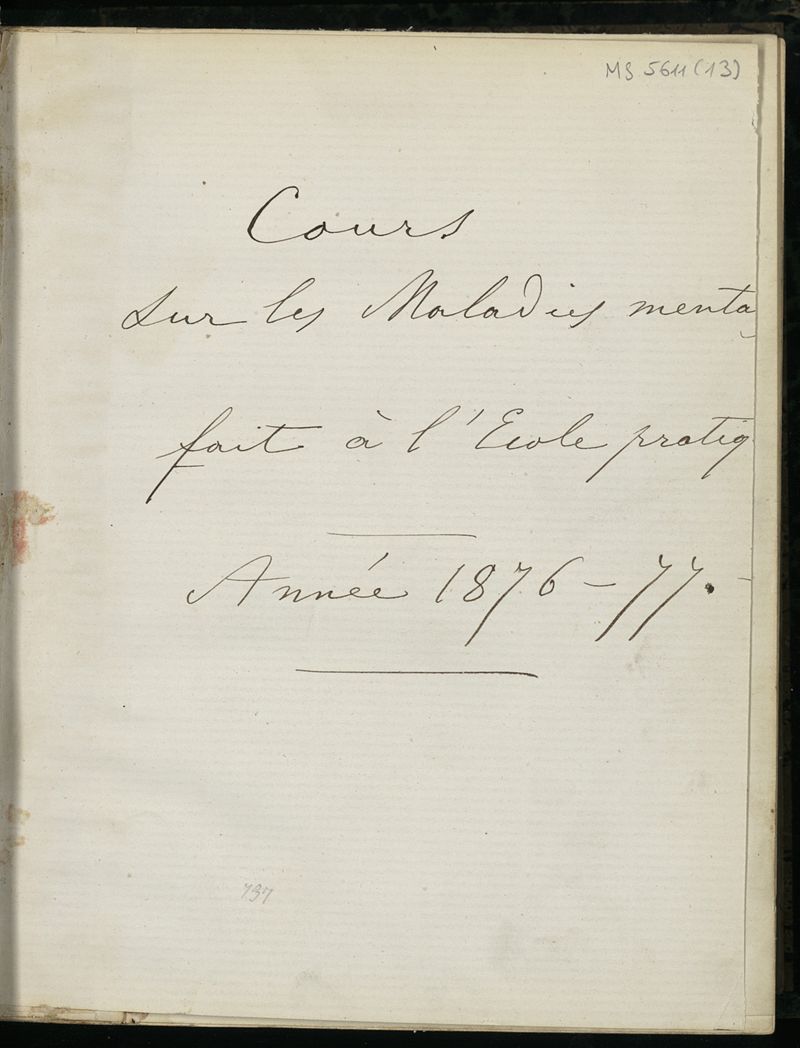 MS 5611 (13)
Cours
sur les Maladies menta
fait à l'Ecole pratiq
Année 1876-77.
737